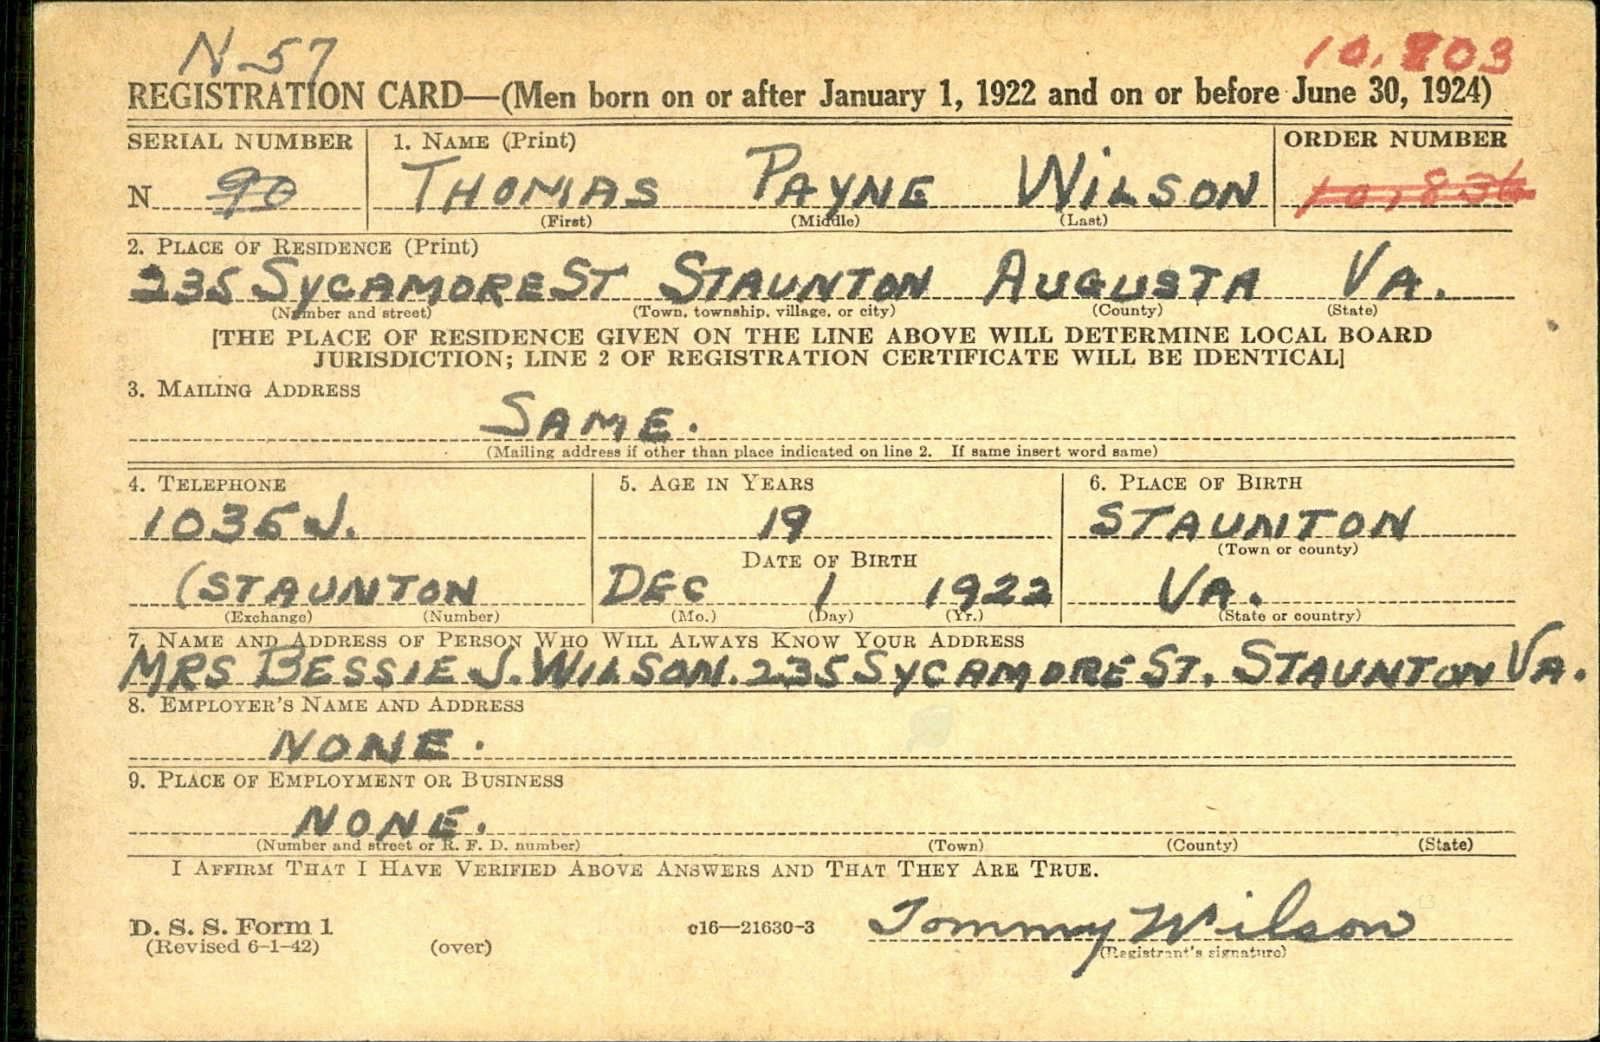 N 57
10,803
REGISTRATION CARD—(Men born on or after January 1, 1922 and on or before June 30, 1924)
SERIAL NUMBER
1. NAME (Print)
ORDER NUMBER
N 90
THOMAS PAYNE WILSON
10,836
(First) (Middle) (Last)
2. PLACE OF RESIDENCE (Print)
235 SYCAMORE ST STAUNTON AUGUSTA VA.
(Number and street) (Town, township, village, or city) (County) (State)
[THE PLACE OF RESIDENCE GIVEN ON THE LINE ABOVE WILL DETERMINE LOCAL BOARD
JURISDICTION; LINE 2 OF REGISTRATION CERTIFICATE WILL BE IDENTICAL]
3. MAILING ADDRESS
SAME.
(Mailing address if other than place indicated on line 2. If same insert word same)
4. TELEPHONE
5. AGE IN YEARS
6. PLACE OF BIRTH
1035 J.
19
STAUNTON
(Town or county)
DATE OF BIRTH
(STAUNTON
DEC 1 1922
VA.
(Exchange) (Number)
(Mo.) (Day) (Yr.)
(State or country)
7. NAME AND ADDRESS OF PERSON WHO WILL ALWAYS KNOW YOUR ADDRESS
MRS BESSIE J. WILSON. 235 SYCAMORE ST. STAUNTON VA.
8. EMPLOYER'S NAME AND ADDRESS
NONE.
9. PLACE OF EMPLOYMENT OR BUSINESS
NONE.
(Number and street or R. F. D. number) (Town) (County) (State)
I AFFIRM THAT I HAVE VERIFIED ABOVE ANSWERS AND THAT THEY ARE TRUE.
D. S. S. Form 1
(Revised 6-1-42)
(over)
c16—21630-3
Tommy Wilson
(Registrant's signature)